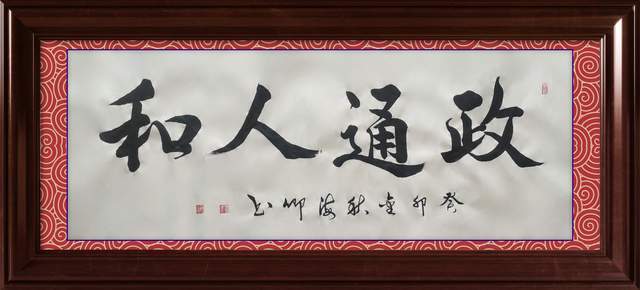 政通人和
癸卯金秋海书